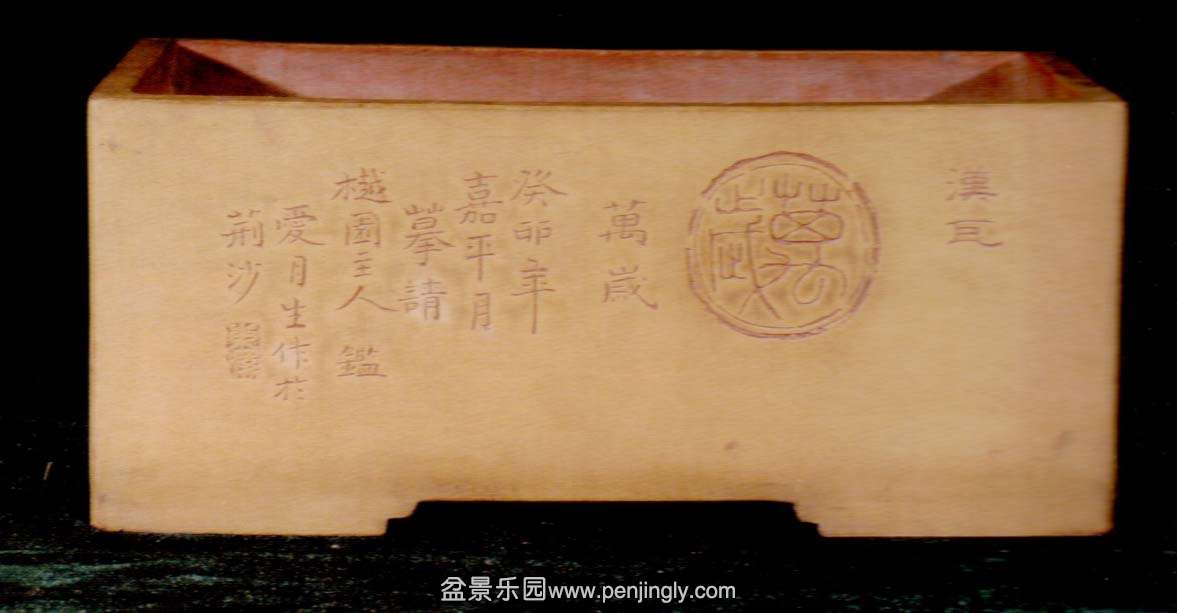 漢瓦
萬歲
萬歲
癸卯年
嘉平月
摹請
樾園主人鑑
愛月生作於
荊沙
盆景乐园www.penjingly.com